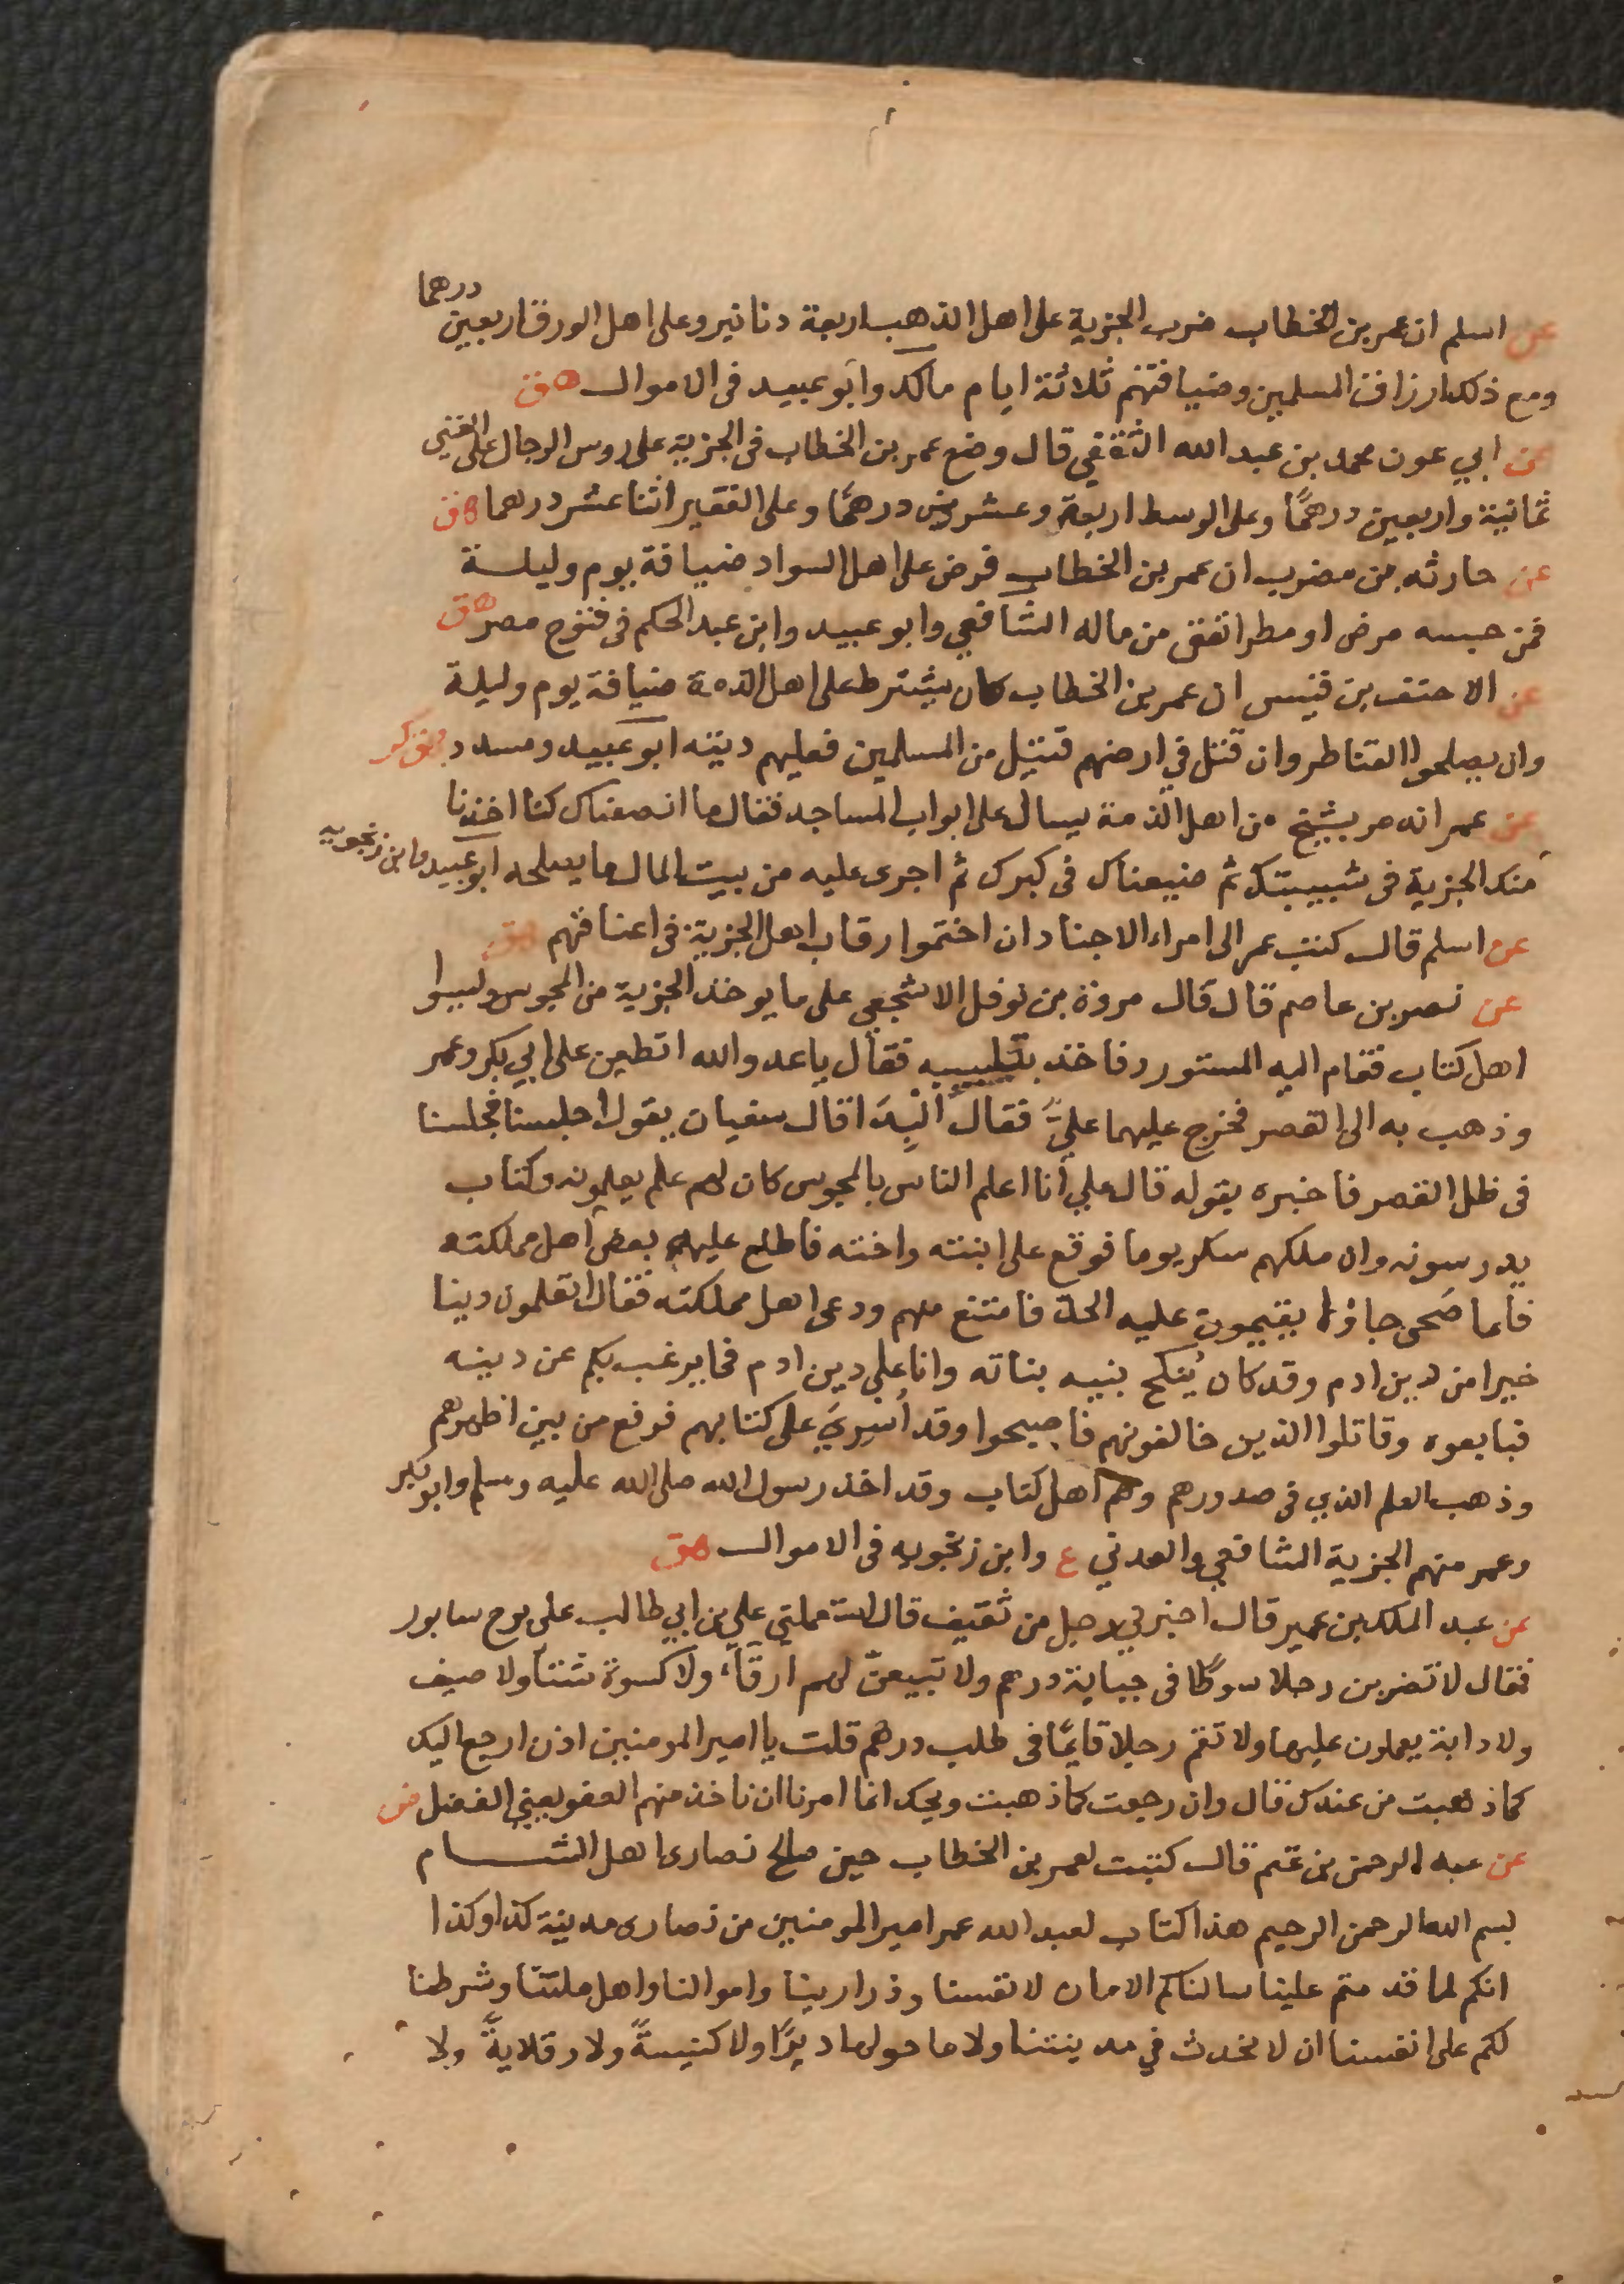 عن اسلم ان عمر بن الخطاب ضرب الجزية على اهل الذهب اربعة دنانير وعلى اهل الورق اربعين درهما
ومع ذلك ارزاق المسلمين وضيافتهم ثلاثة ايام مالك وابو عبيد فى الاموال هق
عن ابي عون محمد بن عبد الله الثقفي قال وضع عمر بن الخطاب فى الجزية على روس الرجال على الغني
ثمانية واربعين درهمًا وعلى الوسط اربعة وعشرين درهمًا وعلى الفقير اثنا عشر درهما هق
عن حارثه بن مضرب ان عمر بن الخطاب فرض على اهل السواد ضيافة يوم وليلة
فمن حبسه مرض او مطر انفق من ماله الشافعي وابو عبيد وابن عبد الحكم فى فتوح مصر هق
عن الاحنف بن قيس ان عمر بن الخطاب كان يشترط على اهل الذمة ضيافة يوم وليلة
وان يصلحوا القناطر وان قتل في ارضهم قتيل من المسلمين فعليهم ديته ابو عبيد ومسدد هق كر
عن عمر انه مر بشيخ من اهل الذمة يسال على ابواب المساجد فقال ما انصفناك كنا اخذنا
منك الجزية فى شبيبتك ثم ضيعناك فى كبرك ثم اجرى عليه من بيت المال ما يصلحه ابو عبيد وابن زنجويه
عن اسلم قال كتب عمر الى امراء الاجناد ان اختموا رقاب اهل الجزية فى اعناقهم هق
عن نصر بن عاصم قال قال مروة بن نوفل الاشجعي على ما يوخذ الجزية من المجوس وليسوا
اهل كتاب فقام اليه المستورد فاخذ بتلبيبه فقال يا عدو الله اتطعن على ابي بكر وعمر
وذهب به الى القصر فخرج عليهما عليّ فقال البدا قال سفيان يقول اجلسنا فجلسنا
فى ظل القصر فاخبره بقوله قال علي انا اعلم الناس بالمجوس كان لهم علم يعلمونه وكتاب
يدرسونه وان ملكهم سكر يوما فوقع على ابنته واخته فاطلع عليه بعض اهل مملكته
فلما صَحى جاؤا يقيمون عليه الحدّ فامتنع منهم ودعى اهل مملكته فقال اتعلمون دينا
خيرا من دين ادم وقد كان يُنكح بنيه بناته وانا على دين ادم فما يرغب بكم عن دينه
فبايعوه وقاتلوا الذين خالفونهم فاصبحوا وقد اُسريَ على كتابهم فرفع من بين اظهرهم
وذهب العلم الذي فى صدورهم وهم اهل كتاب وقد اخذ رسول الله صلى الله عليه وسلم وابو بكر
وعمر منهم الجزية الشافعي والعدني ع وابن زنجويه فى الاموال هق
عن عبد الملك بن عمير قال اخبرني رجل من ثقيف قال استعملني علي بن ابي طالب على برج سابور
فقال لا تضربن رجلا سوطًا فى جباية درهم ولا تبيعنّ لهم ارزقا ولا كسوة شتآ ولا صيف
ولا دابة يعملون عليها ولا تقم رجلا قايمًا فى طلب درهم قلت يا امير المومنين اذن ارجع اليك
كما ذهبت من عندك قال وان رجعت كما ذهبت ويحك انما امرنا ان ناخذ منهم العفو يعني الفضل هق
عن عبد الرحمن بن غنم قال كتبت لعمر بن الخطاب حين صالح نصارى اهل الشام
بسم الله الرحمن الرحيم هذا كتاب لعبد الله عمر امير المومنين من نصارى مدينة كذا وكذا
انكم لما قدمتم علينا سالناكم الامان لانفسنا وذرارينا واموالنا واهل ملتنا وشرطنا
لكم على انفسنا ان لا نحدث في مدينتنا ولا ما حولها ديرًا ولا كنيسةً ولا قلايةً ولا